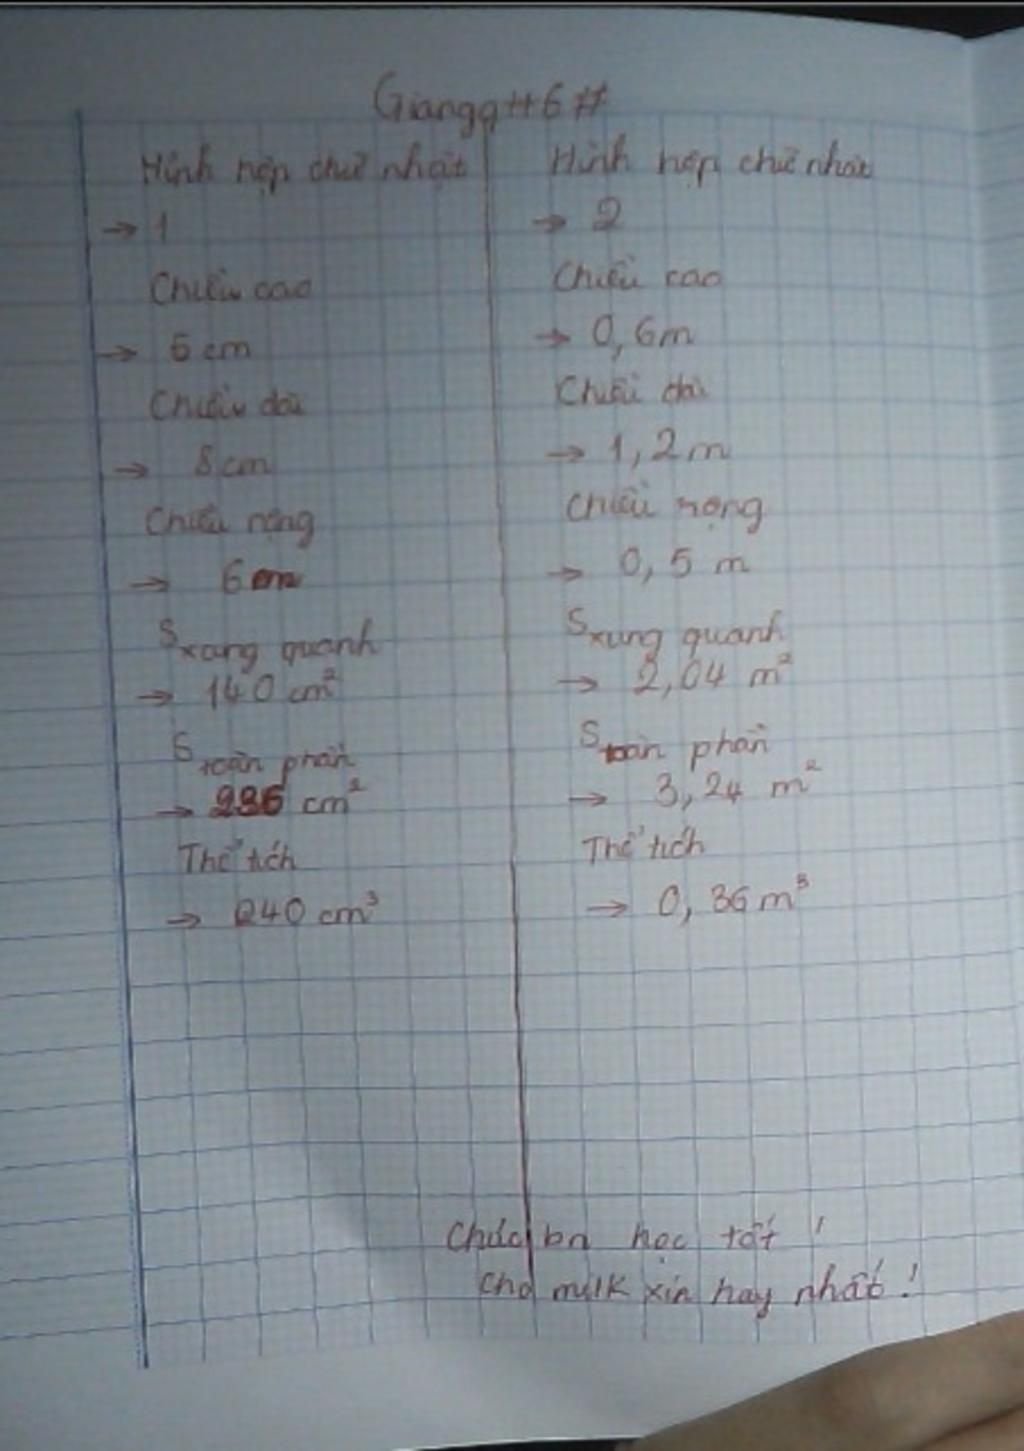 Giangg##6#
Hình hộp chữ nhật
→ 1
Chiều cao
→ 5 cm
Chiều dài
→ 8 cm
Chiều rộng
→ 6 cm
Sxung quanh
→ 140 cm²
Stoàn phần
→ 236 cm²
Thể tích
→ 240 cm³
Hình hộp chữ nhật
→ 2
Chiều cao
→ 0,6m
Chiều dài
→ 1,2m
Chiều rộng
→ 0,5 m
Sxung quanh
→ 2,04 m²
Stoàn phần
→ 3,24 m²
Thể tích
→ 0,36m³
Chúc bn học tốt !
Cho mulk xin hay nhất !